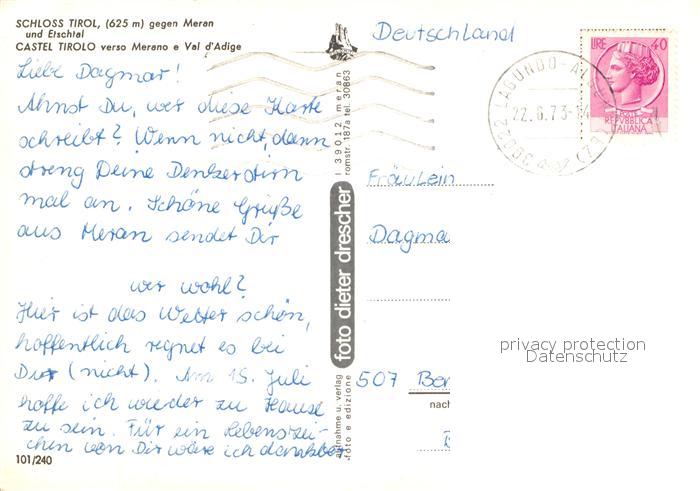 SCHLOSS TIROL, (625 m) gegen Meran
und Etschtal
CASTEL TIROLO verso Merano e Val d'Adige
Liebe Dagmar!
Ahnst Du, wer diese Karte
schreibt? Wenn nicht, dann
streng Deine Denkerstirn
mal an. Schöne Grüße
aus Meran sendet Dir
wer wohl?
Hier ist das Wetter schön,
hoffentlich regnet es bei
Dir (nicht). Am 15. Juli
hoffe ich wieder zu Hause
zu sein. Für ein Lebenszei-
chen von Dir wäre ich dankbar
101/240
foto dieter drescher
I 39012 meran
romstr. 187a tel. 30863
aufnahme u. verlag
foto e edizione
Deutschland
LIRE 40
POSTE
REPVBBLICA
ITALIANA
39022 LAGUNDO-ALG
22.6.73-14
(BZ)
Fräulein
Dagma
507 Ber
nach
privacy protection
Datenschutz